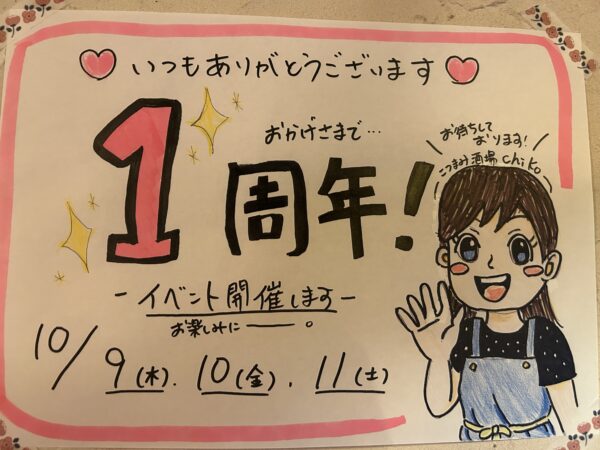 いつもありがとうございます
おかげさまで…
1周年!
お待ちして
おります!
こつまみ酒場 chiko
-イベント開催します-
お楽しみに――。
10/9(木).10(金).11(土)